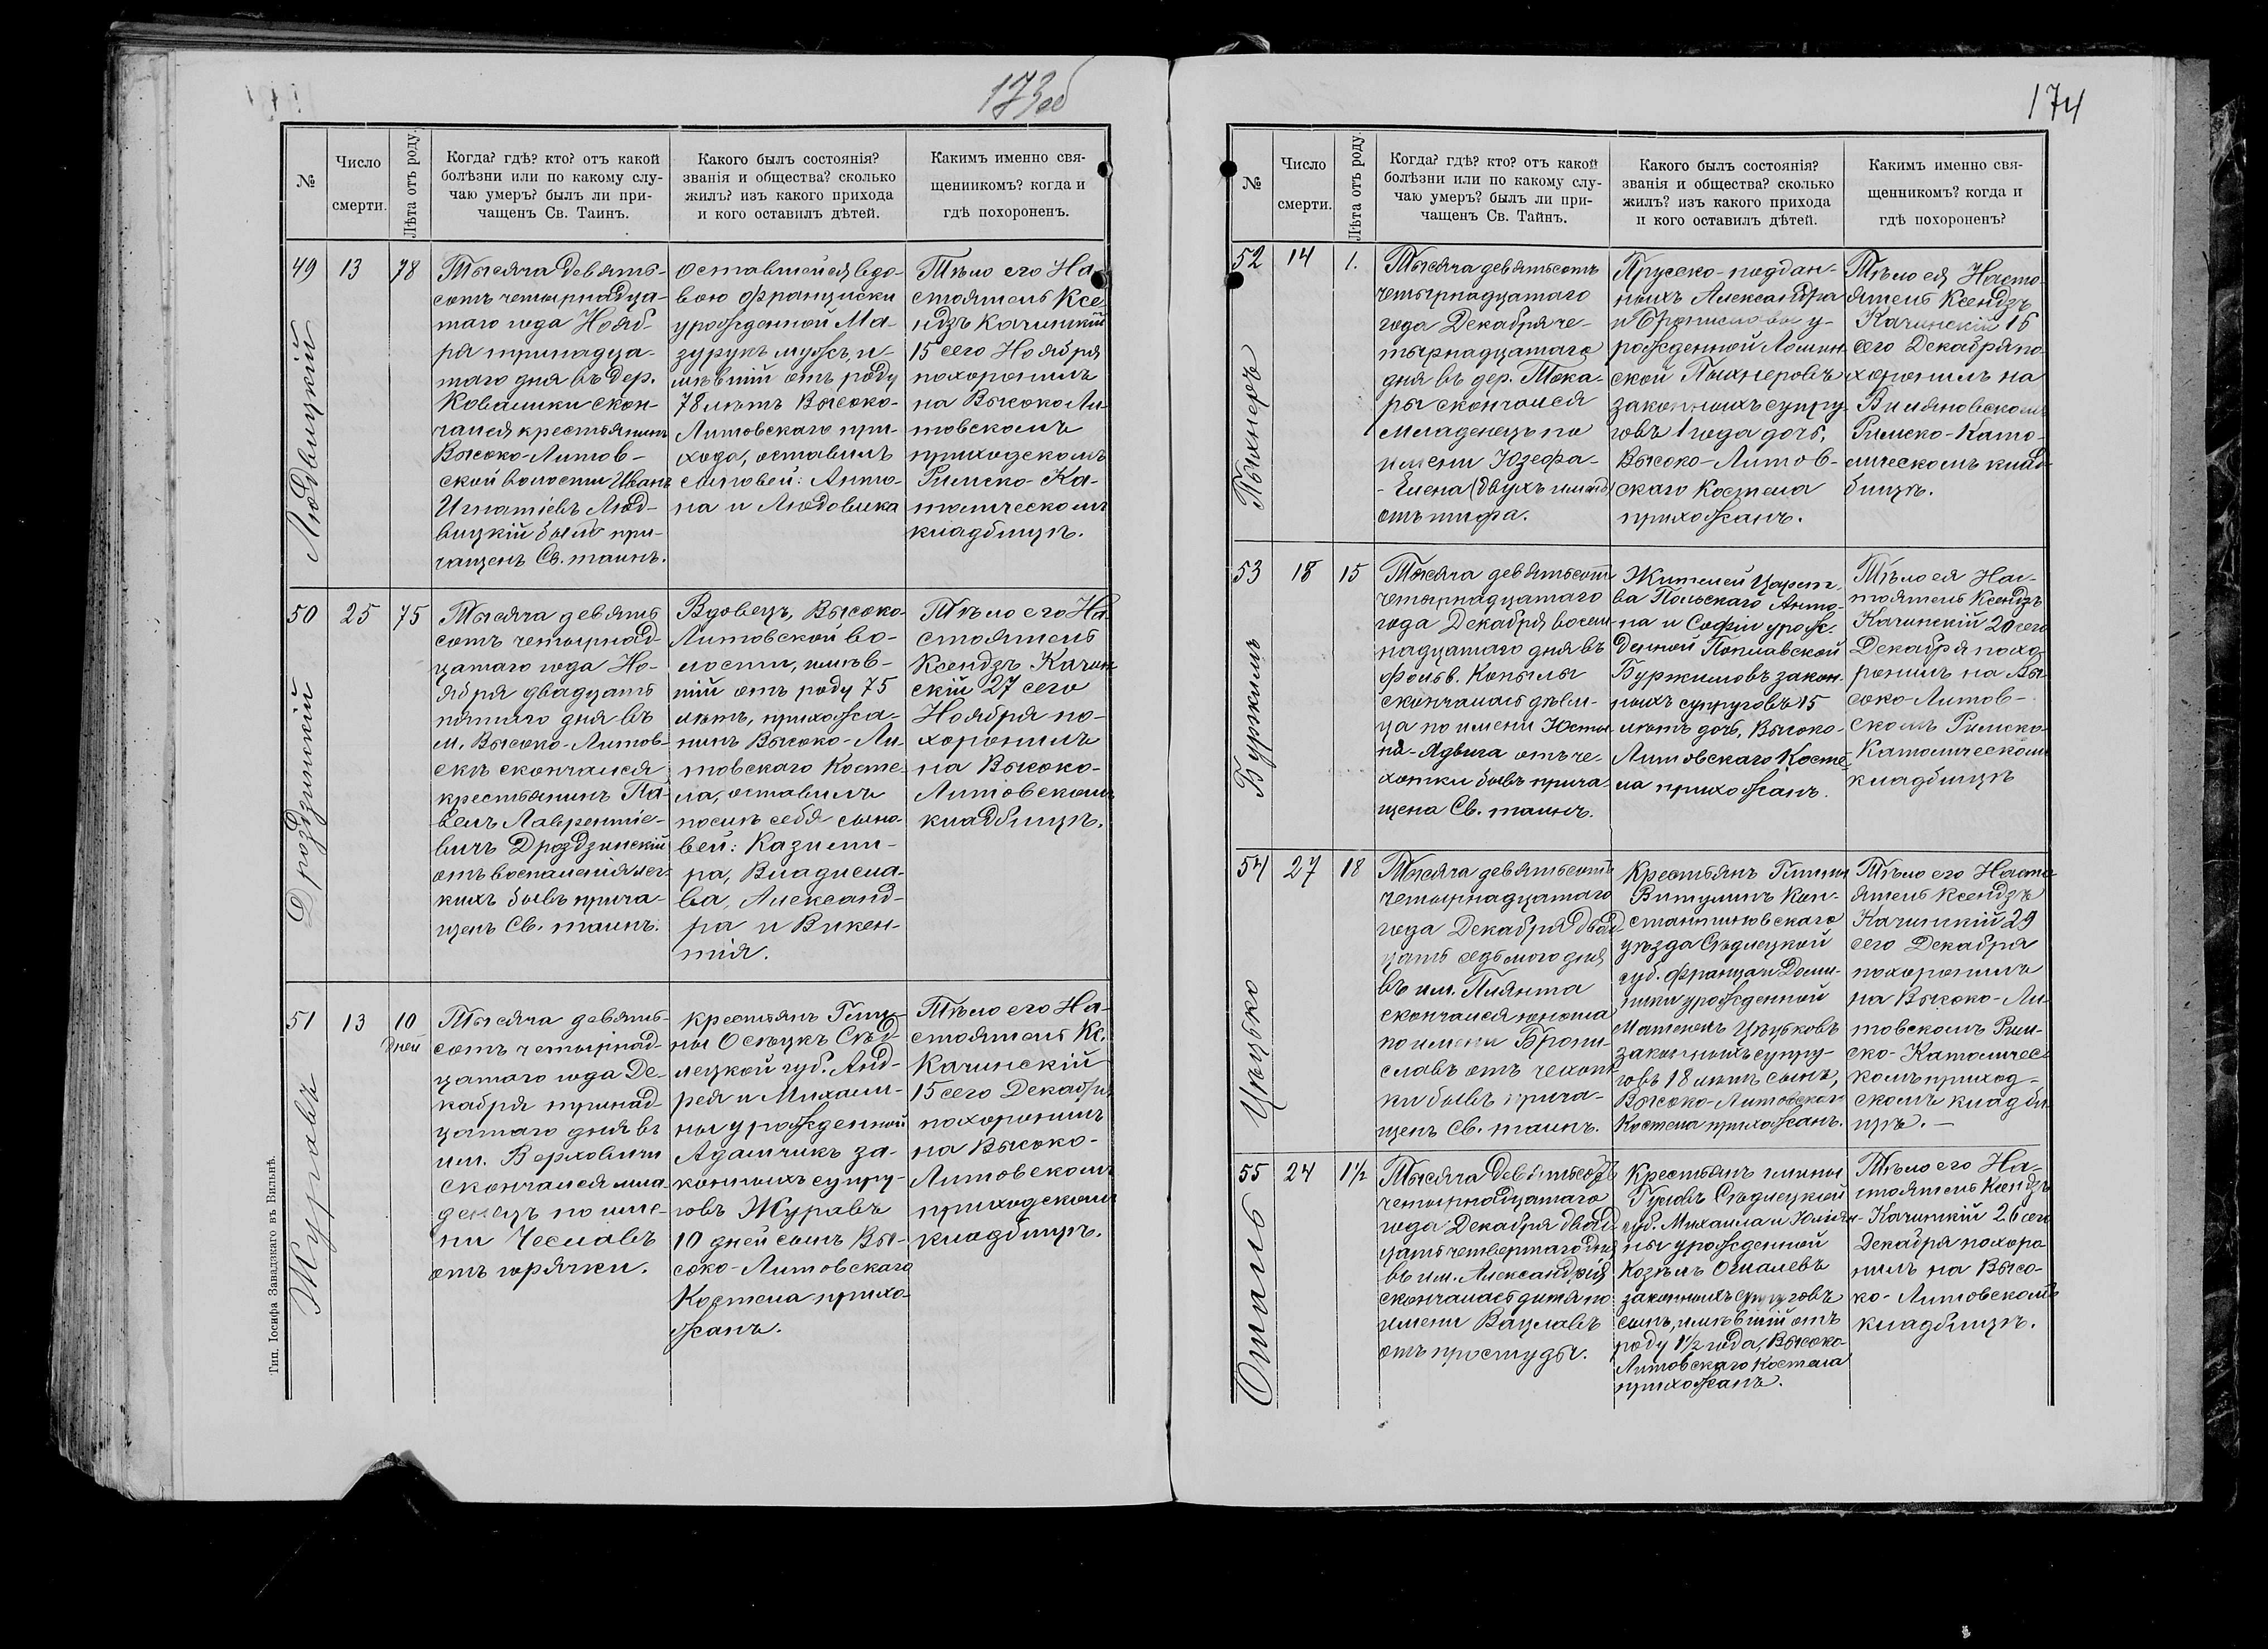 173об
№
Число
смерти.
Лѣта отъ роду.
Когда? гдѣ? кто? отъ какой
болѣзни или по какому слу-
чаю умеръ? былъ ли при-
чащенъ Св. Таинъ.
Какого былъ состоянія?
званія и общества? сколько
жилъ? изъ какого прихода
и кого оставилъ дѣтей.
Какимъ именно свя-
щенникомъ? когда и
гдѣ похороненъ.
49
13
78
Людвицкій
Тысяча девять-
сотъ четырнадца-
таго года Нояб-
ря тринадца-
таго дня въ дер.
Ковалики скон-
чался крестьянинъ
Высоко-Литов-
ской волости Иванъ
Игнатіевъ Люд-
вицкій бывъ при-
чащенъ Св. таинъ.
Оставшейся вдо-
вою Франциски
урожденной Ма-
зурукъ мужъ, и-
мѣвшій отъ роду
78 лѣтъ Высоко-
Литовскаго при-
хода, оставилъ
сыновей: Анто-
на и Людовика
Тѣло его На-
стоятель Ксе-
ндзъ Качинскій
15 сего Ноября
похоронилъ
на Высоко Ли-
товскомъ
приходскомъ
Римско-Ка-
толическомъ
кладбищѣ.
50
25
75
Дроздзинскій
Тысяча девять
сотъ четырнад-
цатаго года Но-
ября двадцать
пятаго дня въ
м. Высоко-Литов-
скѣ скончался
крестьянинъ Па-
велъ Лаврентіе-
вичъ Дроздзинскій
отъ воспаленія лег-
кихъ бывъ прича-
щенъ Св. таинъ.
Вдовецъ, Высоко-
Литовской во-
лости, имѣв-
шій отъ роду 75
лѣтъ, прихожа-
нинъ Высоко-Ли-
товскаго Косте-
ла, оставилъ
послѣ себя сыно-
вей: Казими-
ра, Владисла-
ва, Александ-
ра и Викен-
тія.
Тѣло его На-
стоятель
Ксендзъ Качин-
скій 27 сего
Ноября по-
хоронилъ
на Высоко-
Литовскомъ
кладбищѣ.
51
13
10
дней
Журавъ
Тысяча девять-
сотъ четырнад-
цатаго года Де-
кабря тринад-
цатаго дня въ
им. Верховичи
скончался мла
денецъ по име-
ни Чеславъ
отъ горячки.
Крестьянъ Гми-
ны Олѣцкъ Сѣд-
лецкой губ. Анд-
рея и Михали-
ны урожденной
Адамчикъ за-
конныхъ супру-
говъ Журавъ
10 дней сынъ Вы-
соко-Литовскаго
Костела прихо-
жанъ.
Тѣло его На-
стоятель Кс.
Качинскій
15 сего Декабря
похоронилъ
на Высоко-
Литовскомъ
приходскомъ
кладбищѣ.
Тип. Іосифа Завадзкаго въ Вильнѣ.
174
№
Число
смерти.
Лѣта отъ роду.
Когда? гдѣ? кто? отъ какой
болѣзни или по какому слу-
чаю умеръ? былъ ли при-
чащенъ Св. Тайнъ.
Какого былъ состоянія?
званія и общества? сколько
жилъ? изъ какого прихода
и кого оставилъ дѣтей.
Какимъ именно свя-
щенникомъ? когда и
гдѣ похороненъ?
52
14
1.
Пыхнеръ
Тысяча девятьсотъ
четырнадцатаго
года Декабря че-
тырнадцатаго
дня въ дер. Тока-
ры скончался
младенецъ по
имени Юзефа-
-Елена (двухъ именъ)
отъ тифа.
Прусско-поддан-
ныхъ Александра
и Брониславы у-
рожденной Ломин-
ской Пыхнеровъ
законныхъ супру-
говъ 1 года дочь,
Высоко-Литов-
скаго Костела
прихожанъ.
Тѣло ея Насто-
ятель Ксендзъ
Качинскій 16
сего Декабря по-
хоронилъ на
Вилямовскомъ
Римско-Като-
лическомъ клад-
бищѣ.
53
18
15
Буржимъ
Тысяча девятьсотъ
четырнадцатаго
года Декабря восем-
надцатаго дня въ
фольв. Копылы
скончалась дѣви-
ца по имени Юсты-
на-Ядвига отъ че-
хотки бывъ прича-
щена Св. таинъ.
Жителей Царст-
ва Польскаго Анто-
на и Софіи урож-
денной Поплавской
Буржимовъ закон-
ныхъ супруговъ 15
лѣтъ дочь, Высоко-
Литовскаго Косте-
ла прихожанъ.
Тѣло ея Нас-
тоятель Ксендзъ
Качинскій 20 сего
Декабря похо-
ронилъ на Вы-
соко-Литов-
скомъ Римско-
Католическомъ
кладбищѣ
54
27
18
Цѣцько
Тысяча девятьсотъ
четырнадцатаго
года Декабря двад-
цать седьмого дня
въ им. Плянта
скончался юноша
по имени Брони-
славъ отъ чехот-
ки бывъ прича-
щенъ Св. таинъ.
Крестьянъ Гмины
Витулинъ Кон-
стантиновскаго
уѣзда Сѣдлецкой
губ. Франца и Доми-
ники урожденной
законныхъ супру-
говъ 18 лѣтъ сынъ,
Высоко-Литовскаго
Костела прихожанъ.
Тѣло его Насто-
ятель Ксендзъ
Качинскій 29
сего Декабря
похоронилъ
на Высоко-Ли-
товскомъ Рим-
ско-Католичес-
комъ приход-
скомъ кладби-
щѣ. —
55
24
1½
Тысяча девятьсотъ
четырнадцатаго
года Декабря двад-
цать четвертаго дня
въ им. Александрія
скончалась дитя по
имени Вацлавъ
отъ простуды.
Крестьянъ гмины
Гусовъ Сѣдлецкой
губ. Михаила и Юліян-
ны урожденной
Козѣлъ
законныхъ супруговъ
сынъ, имѣвшій отъ
роду 1½ года, Высоко-
Литовскаго Костела
прихожанъ.
Тѣло его На-
стоятель Ксендзъ
Качинскій 26 сего
Декабря похоро-
нилъ на Высо-
ко-Литовскомъ
кладбищѣ.